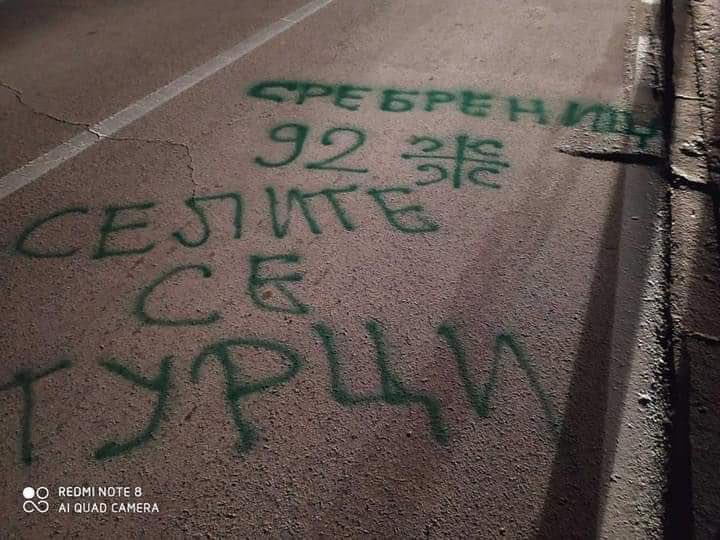 СРЕБРЕНИЦ
92 С С С С
СЕЛИТЕ
СЕ
ТУРЦИ
REDMI NOTE 8
AI QUAD CAMERA